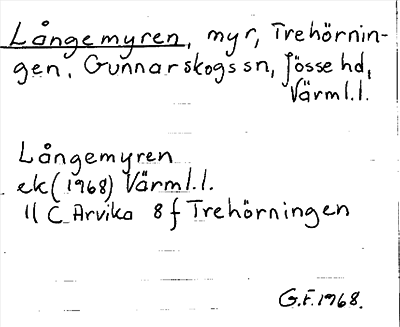 Långemyren, myr, Trehörnin-
gen, Gunnarskogs sn, Jösse hd,
Värml.l.
Långemyren
ek (1968) Värml.l.
11 C Arvika 8 f Trehörningen
G.F. 1968.